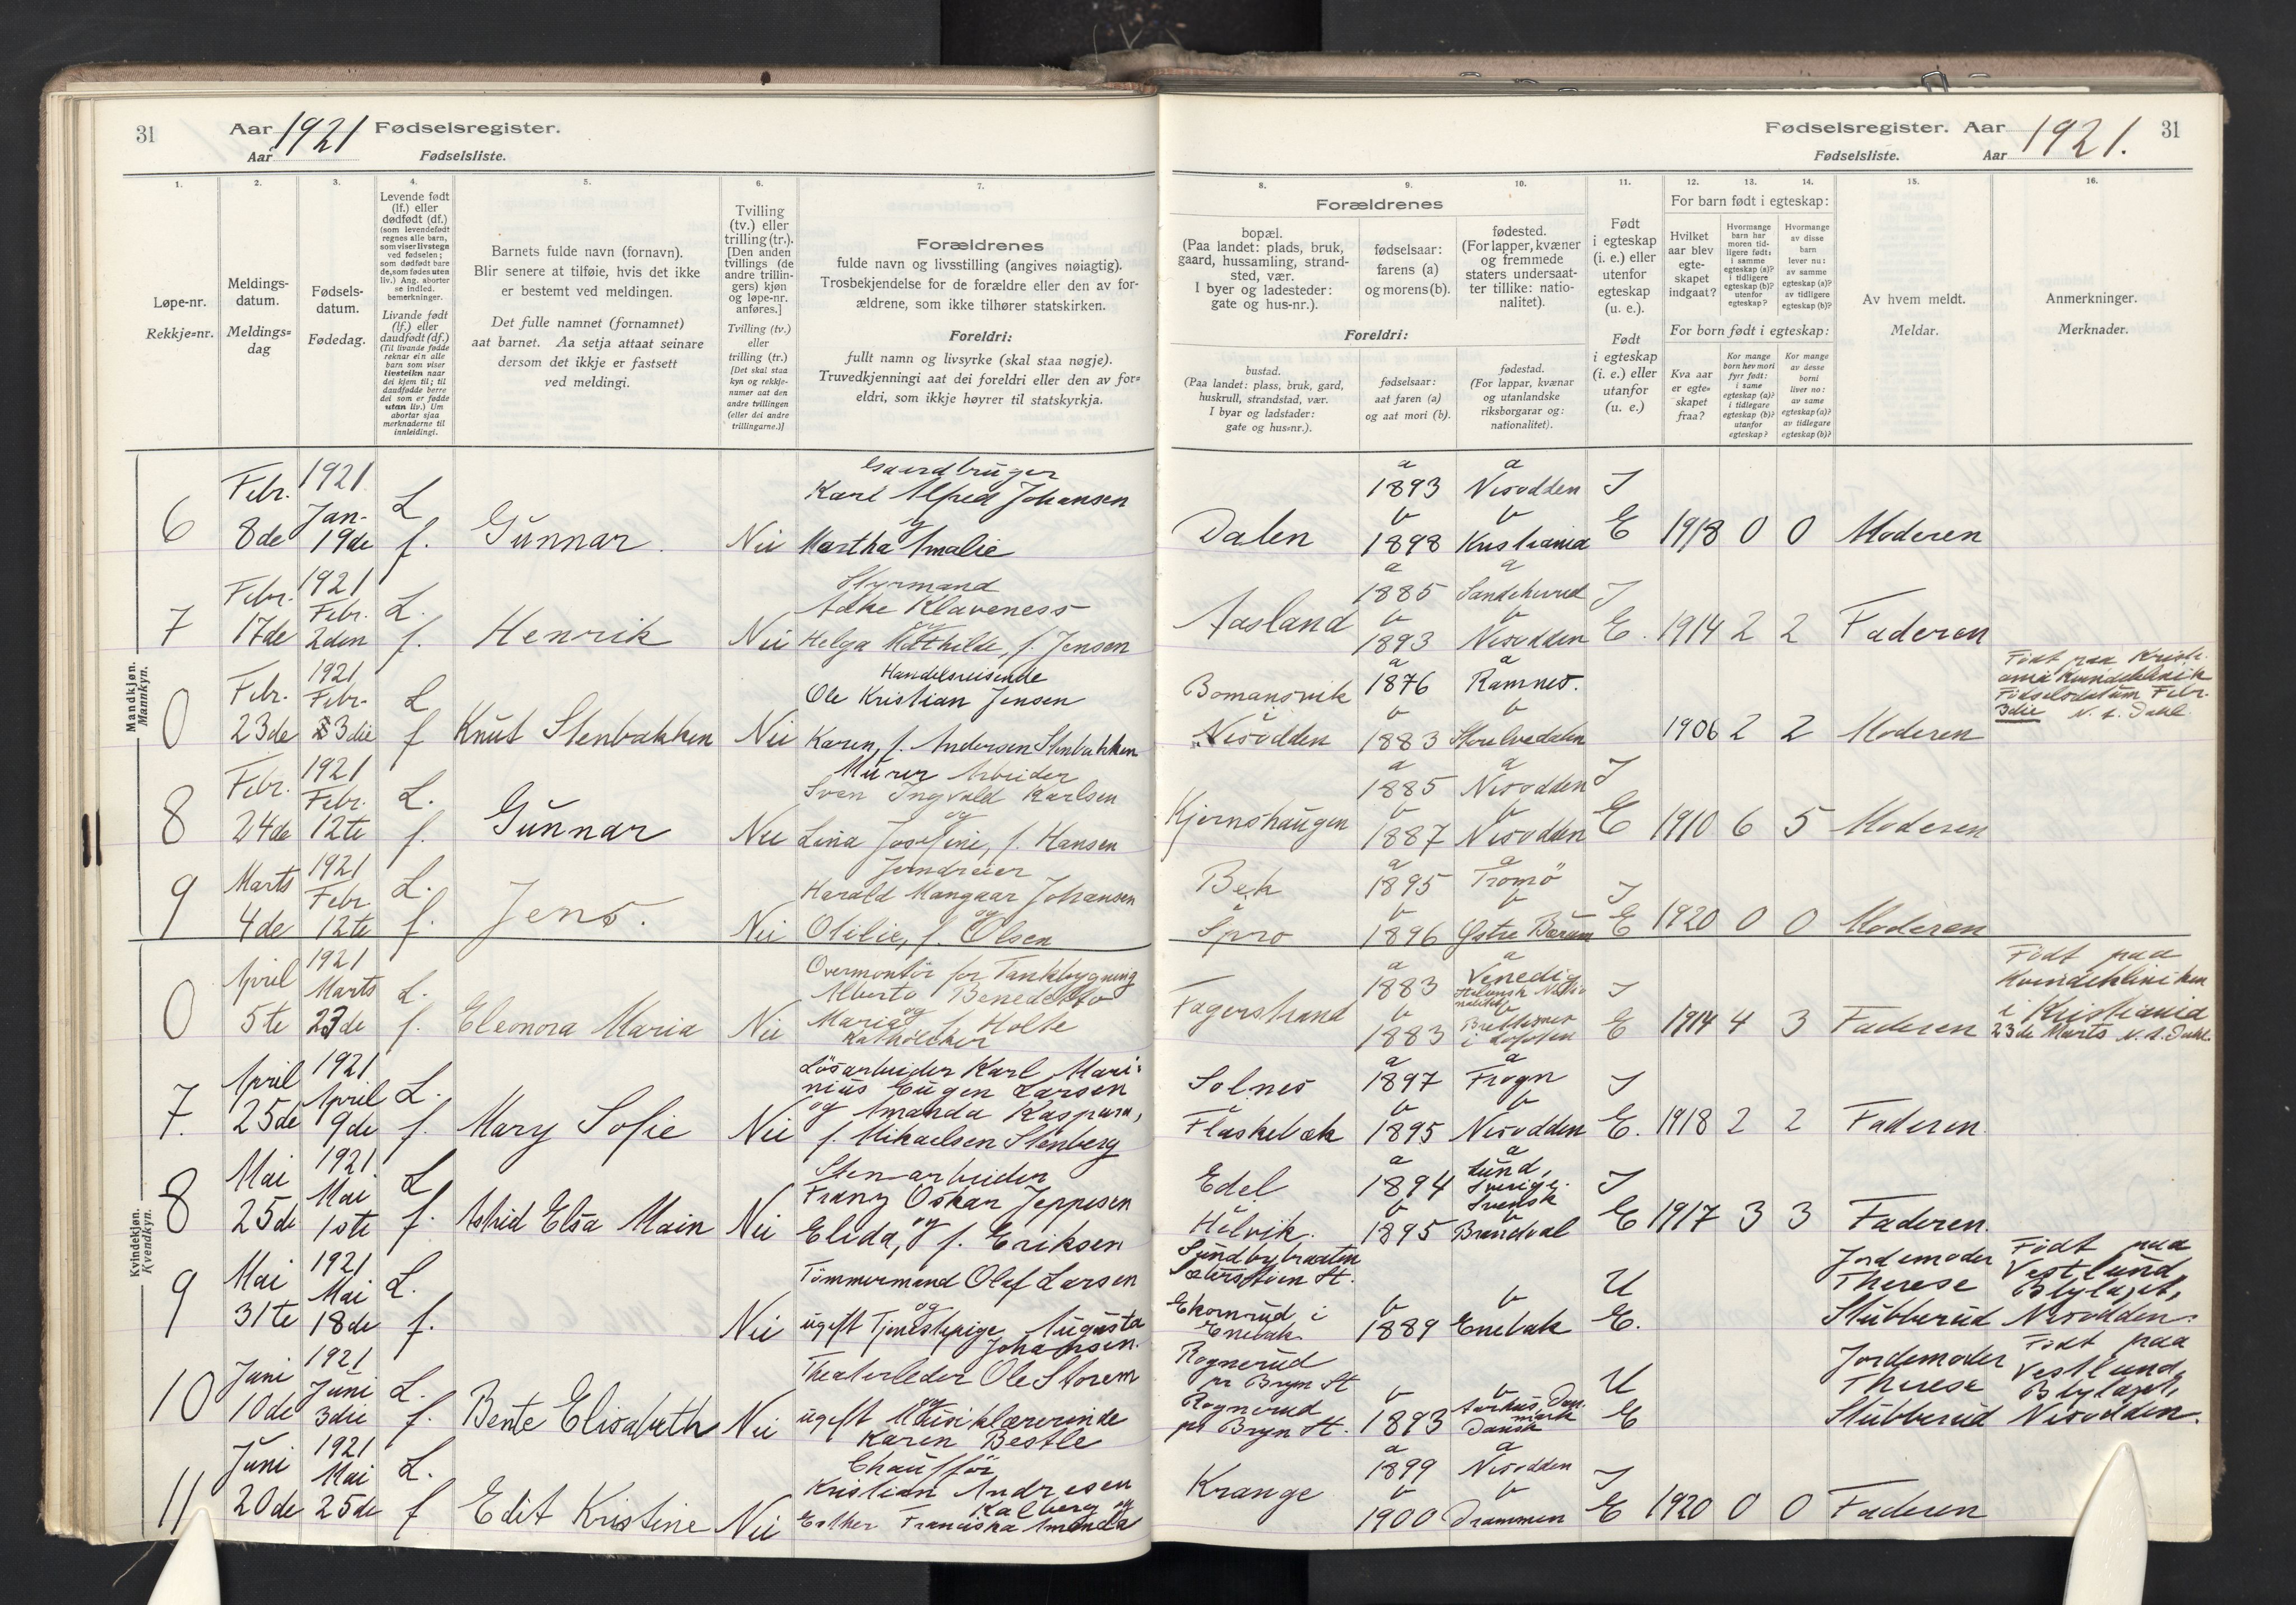 31 Aar 1921 Fødselsregister.
Aar Fødselsliste.
Fødselsregister. Aar 1921. 31
Fødselsliste. Aar
1.
Løpe-nr.
Rekkje=nr.
2.
Meldings-
datum.
Meldings=
dag
3.
Fødsels-
datum.
Fødedag.
4.
Levende født
(lf.) eller
dødfødt (df.)
(som levendefødt
regnes alle barn,
som viser livstegn
ved fødselen;
som dødfødt bare
de, som fødes uten
liv.) Ang. aborter
se indled.
bemerkninger.
Livande født
(lf.) eller
daudfødt (df.)
(Til livande fødde
reknar ein alle
barn som viser
livsteikn naar
dei kjem til; til
daudfødde berre
dei som er fødde
utan liv.) Um
abortar sjaa
merknaderne til
innleidingi.
5.
Barnets fulde navn (fornavn).
Blir senere at tilføie, hvis det ikke
er bestemt ved meldingen.
Det fulle namnet (fornamnet)
aat barnet. Aa setja attaat seinare
dersom det ikkje er fastsett
ved meldingi.
6.
Tvilling
(tv.) eller
trilling (tr.).
[Den anden
tvillings (de
andre trillin-
gers) kjøn
og løpe-nr.
anføres.]
Tvilling (tv.)
eller
trilling (tr.)
[Det skal staa
kyn og rekkje-
numer aat den
andre tvillingen
(eller dei andre
trillingarne.)]
7.
Forældrenes
fulde navn og livsstilling (angives nøiagtig).
Trosbekjendelse for de forældre eller den av for-
ældrene, som ikke tilhører statskirken.
Foreldri:
fullt namn og livsyrke (skal staa nøgje).
Truvedkjenningi aat dei foreldri eller den av for=
eldri, som ikkje høyrer til statskyrkja.
8. 9. 10.
Forældrenes
bopæl.
(Paa landet: plads, bruk,
gaard, hussamling, strand-
sted, vær.
I byer og ladesteder:
gate og hus-nr.).
fødselsaar:
farens (a)
og morens (b).
fødested.
(For lapper, kvæner
og fremmede
staters undersaat-
ter tillike: natio-
nalitet).
Foreldri:
bustad.
(Paa landet: plass, bruk, gard,
huskrull, strandstad, vær.
I byar og ladstader:
gate og hus=nr.).
fødselsaar:
aat faren (a)
og aat mori (b).
fødestad.
(For lappar, kvænar
og utanlandske
riksborgarar og:
nationalitet).
11.
Født
i egteskap
(i. e.) eller
utenfor
egteskap
(u. e.).
Født
i egteskap
(i. e.) eller
utanfor
(u. e.)
12. 13. 14.
For barn født i egteskap:
Hvilket
aar blev
egte-
skapet
indgaat?
Hvormange
barn har
moren tid-
ligere født:
i samme
egteskap (a)?
i tidligere
egteskap (b)?
utenfor
egteskap?
Hvormange
av disse
barn
lever nu:
av samme
egteskap (a)?
av tidligere
egteskap (b)?
For born født i egteskap:
Kva aar
er egte=
skapet
fraa?
Kor mange
born hev mori
fyrr født:
i same
egteskap (a)?
i tidlegare
egteskap (b)?
utanfor
egteskap?
Kor mange
av desse
borni
liver no:
av same
egteskap (a)?
av tidlegare
egteskap (b)?
15.
Av hvem meldt.
Meldar.
16.
Anmerkninger.
Merknader.
Mandkjøn.
Mannkyn.
6
Febr.
8de
1921
Jan-
19de
L
f.
Gunnar.
Nei
Gaardbruger
Karl Alfred Johansen
og
Martha Amalie
Dalen
a
1893
b
1898
a
Nesodden
b
Kristiania
I
E
1918 0 0 Moderen
7
Febr.
17de
1921
Febr.
2den
L.
f.
Henrik
Nei
Styrmand
Klaveness
og
Helga Mathilde, f. Jensen
Aasland
a
1885
b
1893
a
Sandeherred
b
Nesodden
I
E.
1914 2 2 Faderen
0
Febr.
23de
1921
Febr.
3die
L
f
Knut Stenbakken
Nei
Handelsreisende
Ole Kristian Jensen
Karen, f. Andersen Stenbakken
Bomansvik
Nesodden
a
1876
b
1883
a
Ramnes.
b
1906 2 2 Moderen
Født paa Kristi-
ania Kvindeklinik
Fødselsdatum Febr.
3die N. s. Dahl
8
Febr.
24de
1921
Febr.
12te
L.
f.
Gunnar
Nei
Murer Arbeider
Sven Ingvald Karlsen
og
Lina Josefine, f. Hansen
Kjernshaugen
a
1885
b
1887
a
Nesodden
b
Nesodden
I
E
1910 6 5 Moderen
9
Marts
4de
1921
Febr
12te
L.
f.
Jens.
Nei
Jerndreier
Harald Mangaar Johansen
og
Otilie, f. Olsen
Bek
i
Spro
a
1895
b
1896
a
Tromö
b
Østre Bærum
I
E
1920 0 0 Moderen
Kvindekjøn.
Kvendkyn.
0
April
5te
1921
Marts
23de
L.
f.
Eleonora Maria
Nei
Overmontör for Tankbygning
Alberto Benedetto
og
Maria f. Holte
Katholiker
Fagerstrand
a
1883
b
1883
a
Venedig
Italiensk Natio
nalitet
b
i Lofoten
I
E
1914 4 3 Faderen
Født paa
Kvindekliniken
i Kristiania
23de Marts N. s. Dahl.
7.
April
25de
1921
April
9de
L.
f.
Mary Sofie
Nei
Lösarbeider Karl Mari-
nius Eugen Larsen
og Amanda Kaspara,
f. Mikaelsen Stenberg
Solnes
i
Flaskebæk
a
1897
b
1895
a
Frogn
b
Nesodden
I
E.
1918 2 2 Faderen
8
Mai
25de
1921
Mai
1ste
L
f.
Astrid Elsa Main
Nei
Stenarbeider
Franz Oskar Jeppesen
og
Elida, f. Eriksen
Edel
i
Helvik.
a
1894
b
1895
a
Lund,
Sverige.
Svensk
b
Brandval
I
E
1917 3 3 Faderen.
9
Mai
31te
1921
Mai
18de
L.
f.
Nei
Tømmermand Olaf Larsen
og
ugift Tjenestepige Augusta
Johansen.
Sundbybraaten
St.
Ekornrud i
Enebak
b
1889
b
Enebak
U
E.
Jordemoder
Therese
Stubberud
Født paa
Vestlund
Blylaget,
Nesodden.
10
Juni
10de
1921
Juni
3die
L.
f.
Bente Elisabeth
Nei
Theaterleder Ole Storem
og
ugift Musiklærerinde
Karen Bestle
Rognerud
pr Bryn St
Rognerud
pr Bryn St.
b
1893
b
Aarhus, Dan-
mark
Dansk
U
E
Jordemoder
Therese
Stubberud
Født paa
Vestlund,
Blylaget,
Nesodden.
11
Juni
20de
1921
Mai
25de
L.
f
Edit Kristine
Nei
Chauffør
Kristian Andresen
Kalberg og
Esther Franciska Amanda
Krange
a
1899
b
1900
a
Nesodden
b
Drammen
I
E
1920 0 0 Faderen